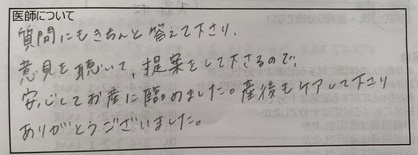 医師について
質問にもきちんと答えて下さり、
意見を聴いて、提案をして下さるので、
安心してお産に臨めました。産後もケアして下さり
ありがとうございました。